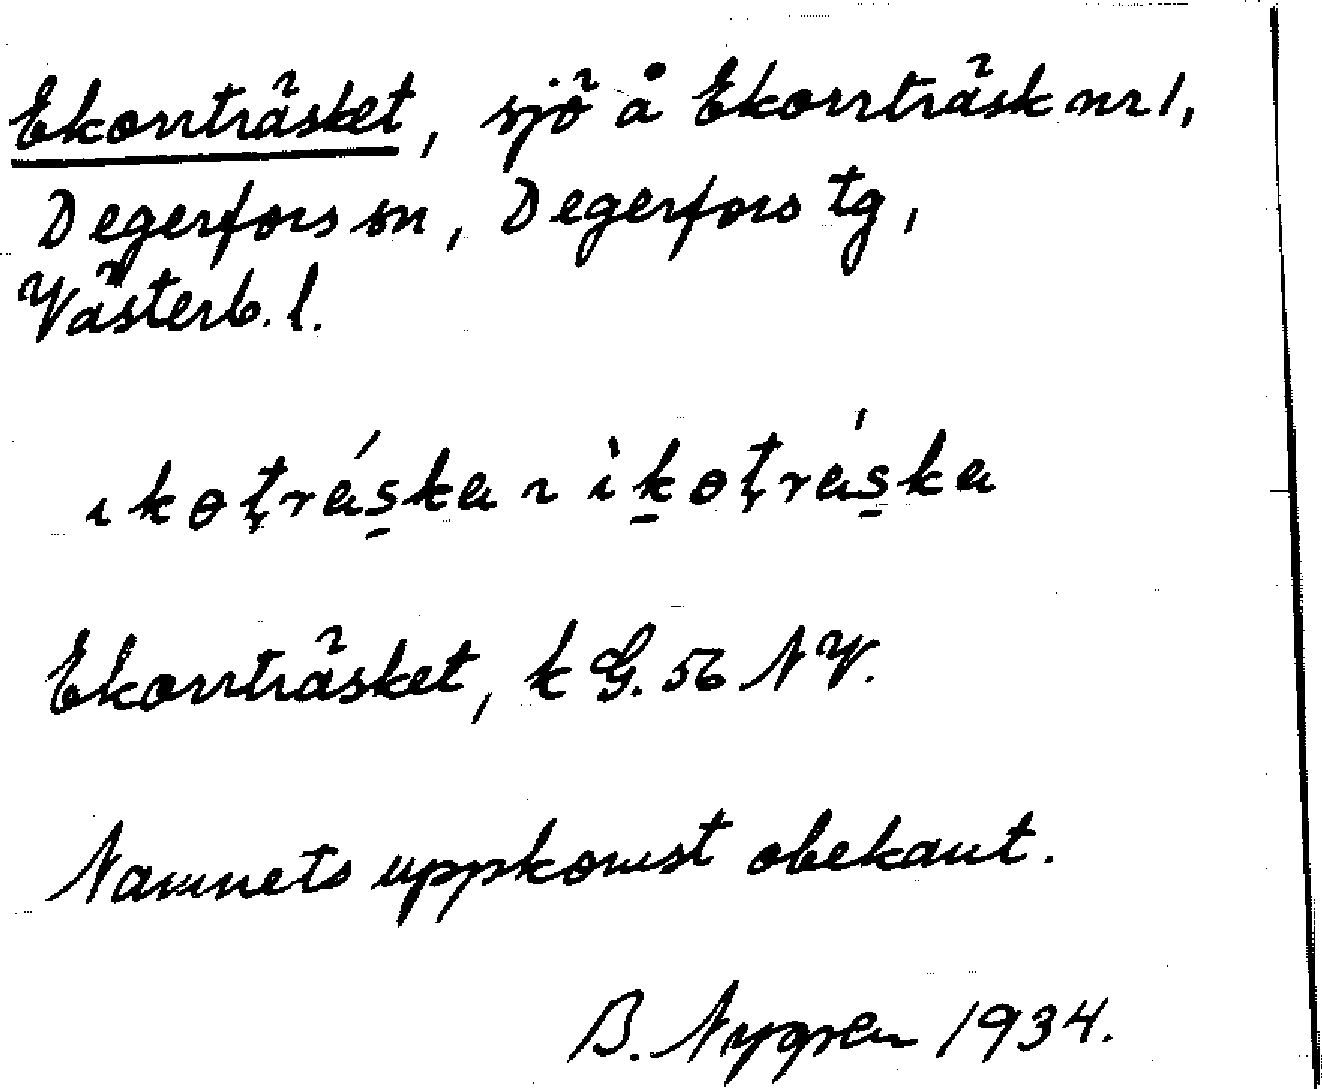 Ekorrträsket, sjö å Ekorrträsk nr 1,
Degerfors sn, Degerfors tg,
Västerb. l.
Ekorrträsket, k G. 56 NV.
Namnets uppkomst obekant.
B. Nygren 1934.